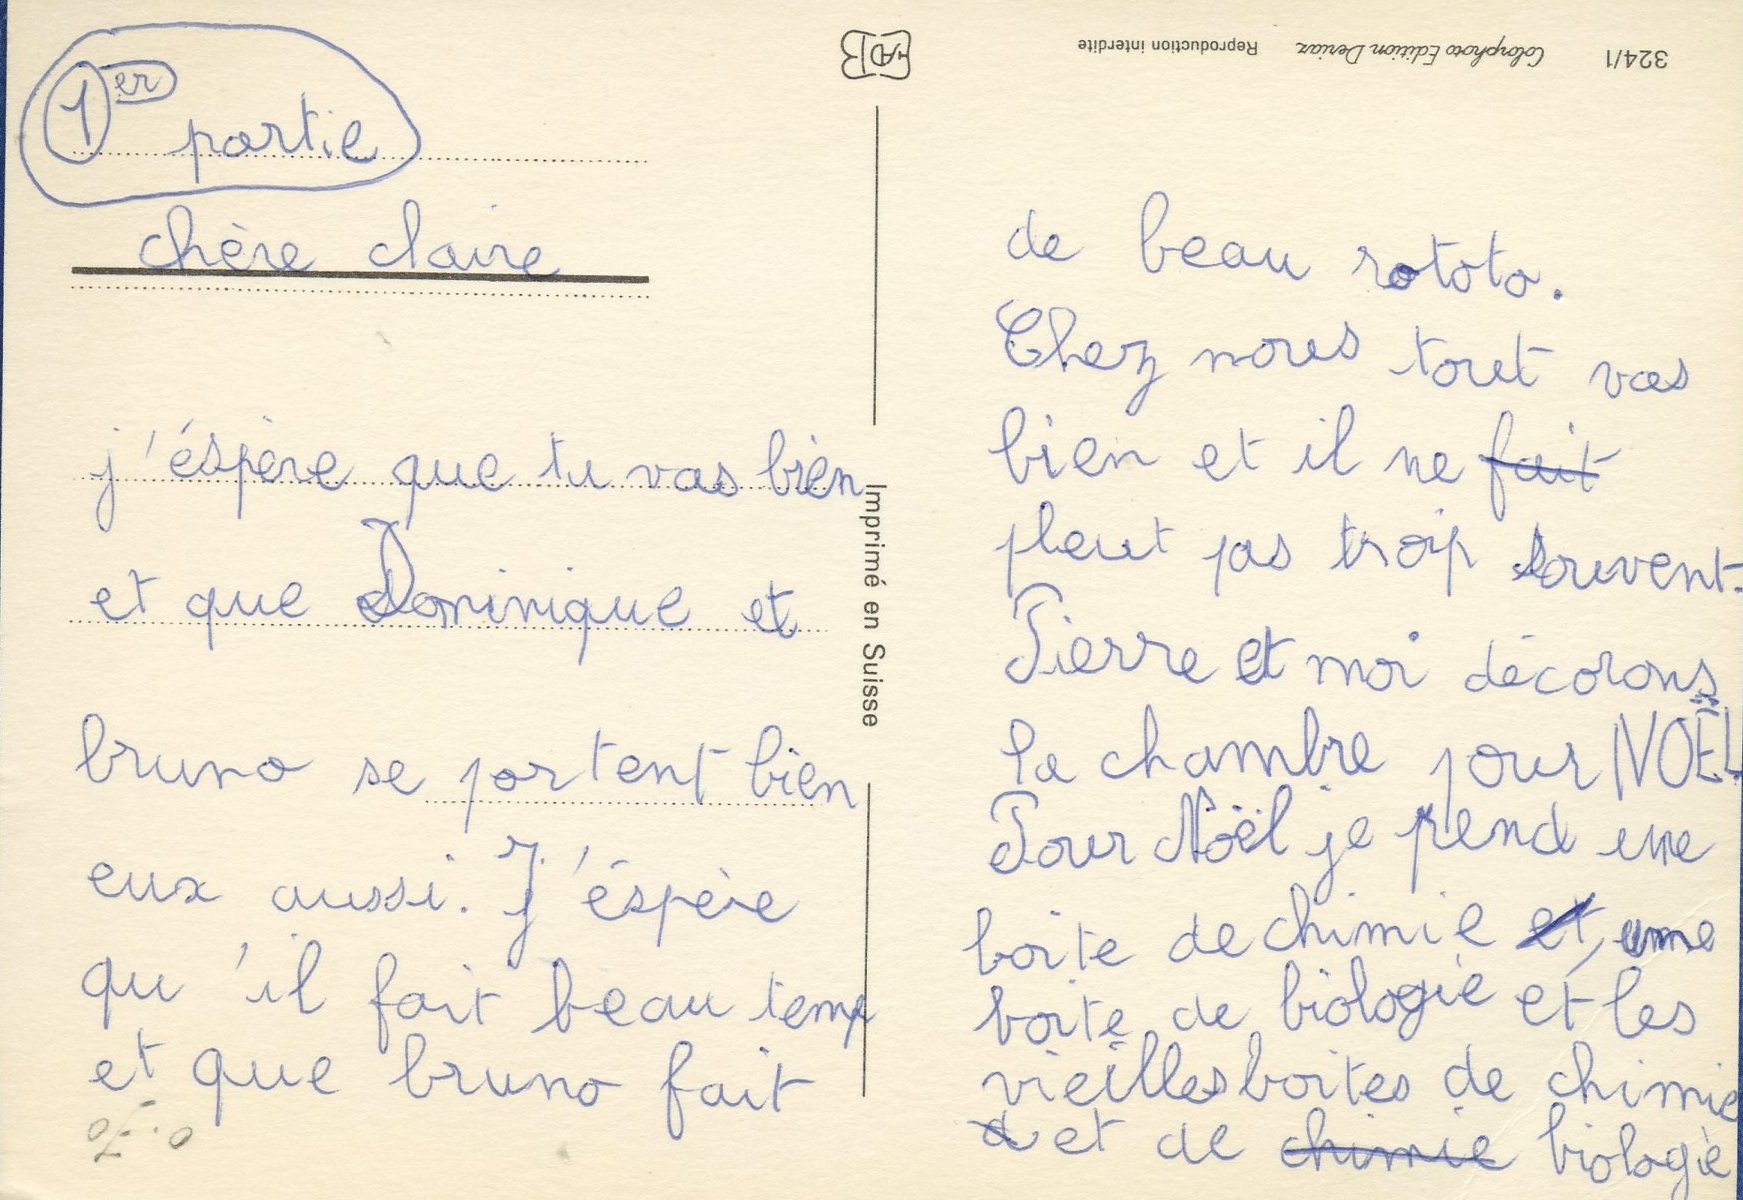 1er partie
chère claire
j'éspère que tu vas bien
et que Dominique et
bruno se portent bien
eux aussi. J'éspère
qu'il fait beau temp
et que bruno fait
0.70
de beau rototo.
Chez nous tout vas
bien et il ne fait
pleut pas trop souvent.
Pierre et moi décorons
la chambre pour NOËL
Pour Noël je prend une
boite de chimie et, une
boite de biologie et les
vieilles boites de chimie
d et de chimie biologie
Imprimé en Suisse
324/1 Colorphoto Edition Deriaz Reproduction interdite